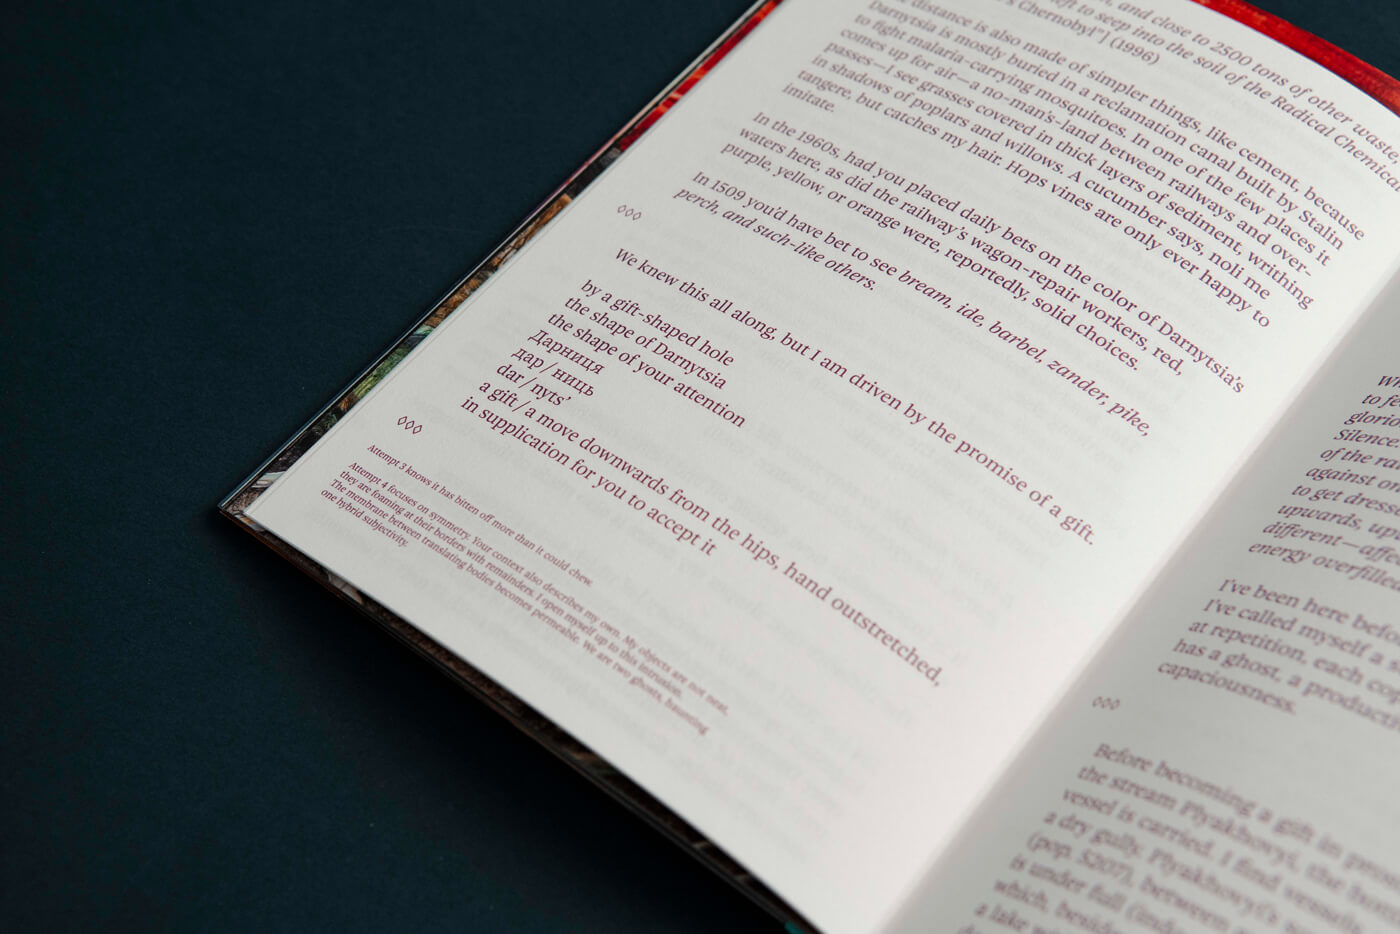 and close to 2500 tons of other waste
left to seep into the soil of the Radical Chemical
Chernobyl"] (1996)
distance is also made of simpler things, like cement, because
Darnytsia is mostly buried in a reclamation canal built by Stalin
to fight malaria-carrying mosquitoes. In one of the few places it
comes up for air—a no-man's-land between railways and over-
passes—I see grasses covered in thick layers of sediment, writhing
in shadows of poplars and willows. A cucumber says, noli me
tangere, but catches my hair. Hops vines are only ever happy to
imitate.
In the 1960s, had you placed daily bets on the color of Darnytsia's
waters here, as did the railway's wagon-repair workers, red,
purple, yellow, or orange were, reportedly, solid choices.
In 1509 you'd have bet to see bream, ide, barbel, zander, pike,
perch, and such-like others.
◊◊◊
We knew this all along, but I am driven by the promise of a gift.
by a gift-shaped hole
the shape of Darnytsia
the shape of your attention
Дарниця
дар/ниць
dar/nyts'
a gift/a move downwards from the hips, hand outstretched,
in supplication for you to accept it
◊◊◊
Attempt 3 knows it has bitten off more than it could chew.
Attempt 4 focuses on symmetry. Your context also describes my own. My objects are not neat,
they are foaming at their borders with remainders. I open myself up to this intrusion.
The membrane between translating bodies becomes permeable. We are two ghosts, haunting
one hybrid subjectivity.
to fe
glorio
Silence.
of the ra
against on
to get dress
upwards, up
different—affe
energy overfille
I've been here befo
I've called myself a
at repetition, each co
has a ghost, a producti
capaciousness.
◊◊◊
Before becoming a gift in
the stream Plyakhovyi, the
vessel is carried. I find vessels
a dry gully. Plyakhovyi's
(pop. 5207), between
is under full
which, beside
a lake